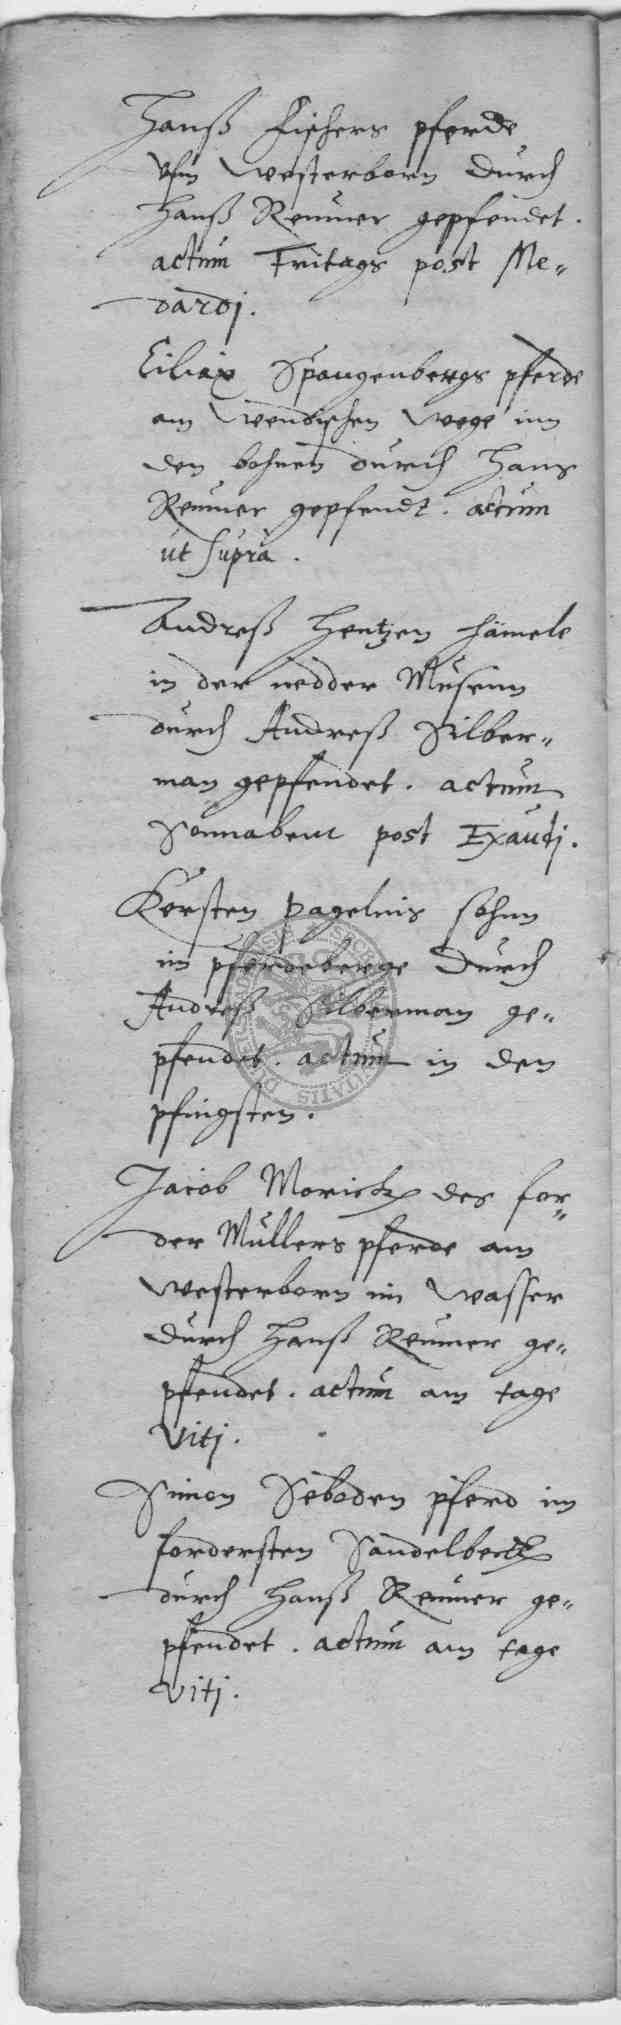 Hanß Fischers pferde
vfm Westerborn durch
Hanß Remmer gepfendet.
actum Fritags post Me-
dardj.
Ciliax Spangenbergs pferde
am Wendischen wege inn
den bohnen durch Hans
Remmer gepfendt. actum
ut supra.
Andreß Hentzen hämele
in der nedder
durch Andreß Silber-
man gepfendet. actum
Sonnabent post Exaudj.
Kersten Pagelnis sohnn
im pferdeberge durch
Andreß Silberman ge-
pfendet. actum in den
pfingsten.
Jacob Moritz des for-
der Müllers pferde am
Westerborn im Wasser
durch Hanß Remmer ge-
pfendet. actum am tage
Viti.
Simon Seboden pferd im
fordersten Sandelbeck
durch Hanß Remmer ge-
pfendet. actum am tage
Viti.